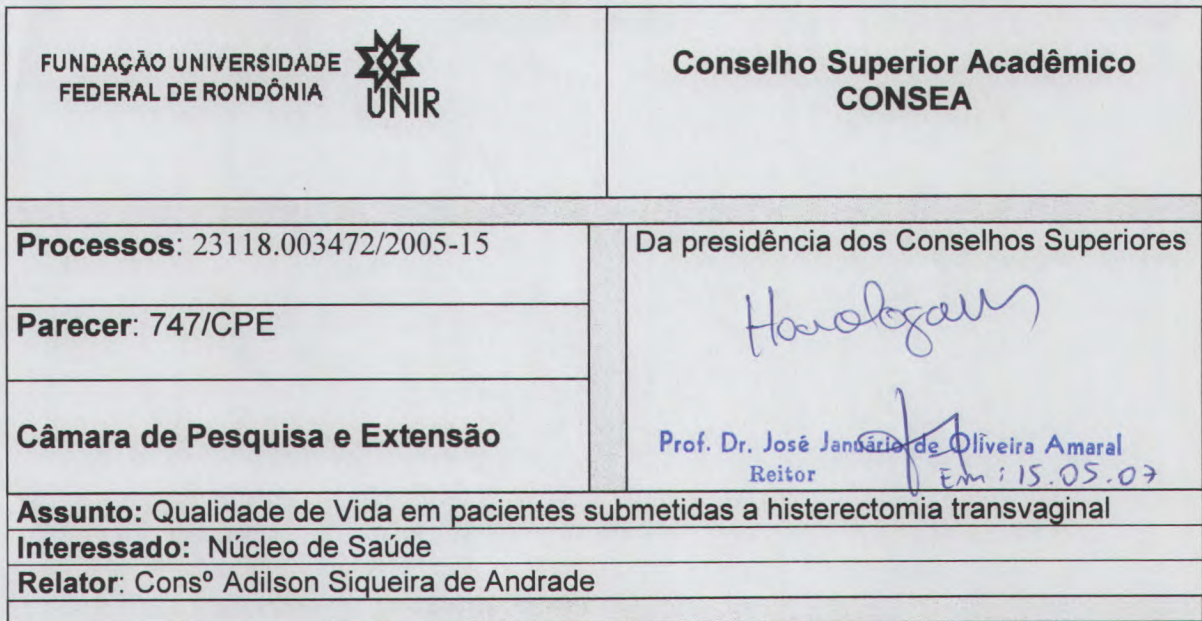 FUNDAÇÃO UNIVERSIDADE
FEDERAL DE RONDÔNIA
UNIR
Conselho Superior Acadêmico
CONSEA
Processos: 23118.003472/2005-15
Parecer: 747/CPE
Câmara de Pesquisa e Extensão
Da presidência dos Conselhos Superiores
Prof. Dr. José Januário de Oliveira Amaral
Reitor
Em: 15.05.07
Assunto: Qualidade de Vida em pacientes submetidas a histerectomia transvaginal
Interessado: Núcleo de Saúde
Relator: Consº Adilson Siqueira de Andrade